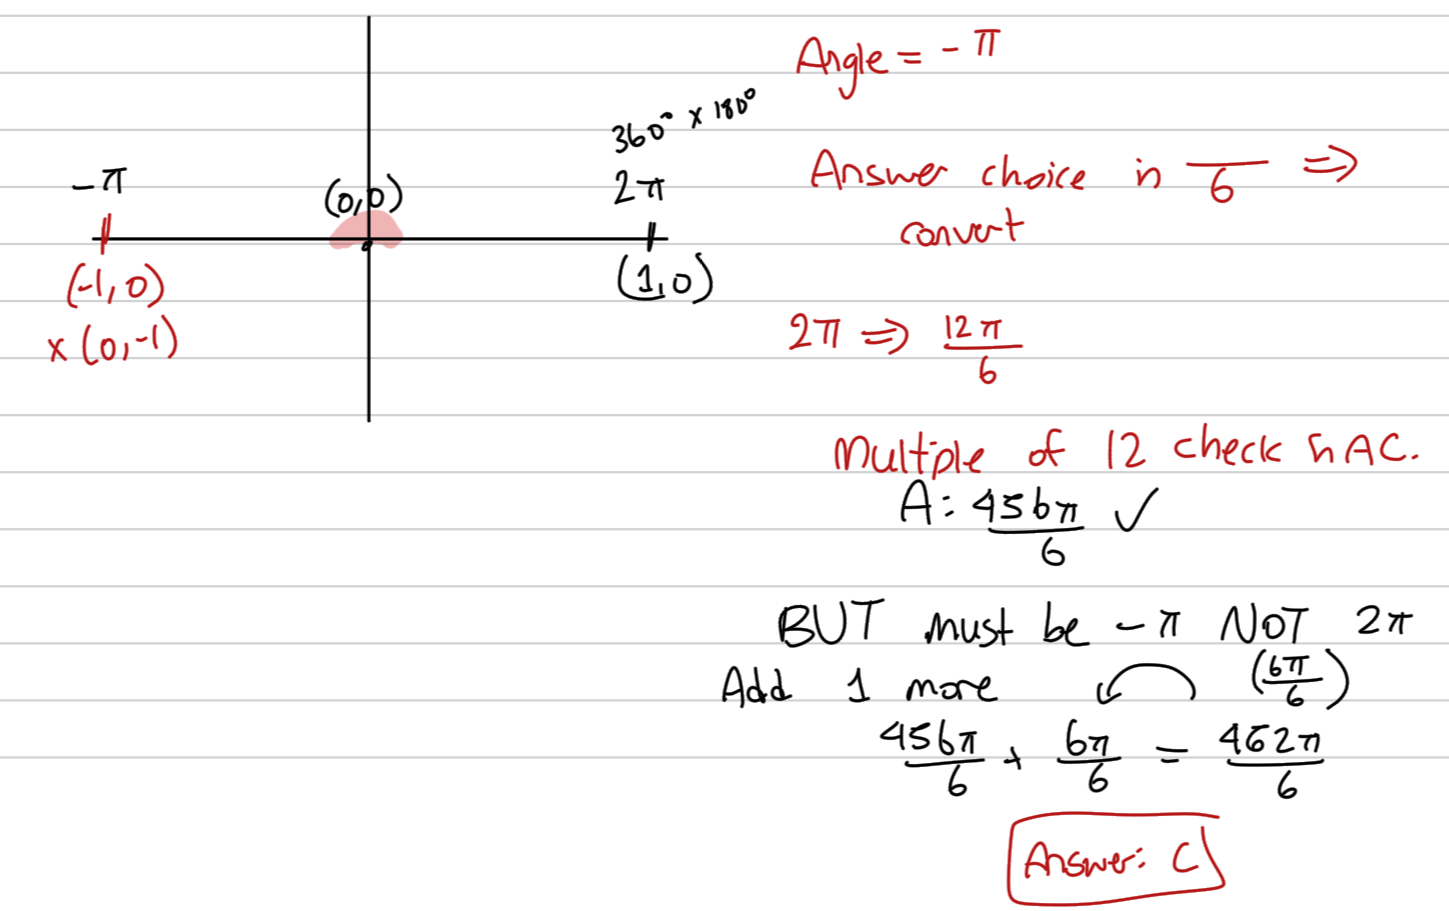 -π
(0,0)
360° x 180°
2π
(-1,0)
x (0,-1)
(1,0)
Angle = -π
Answer choice in __/6 ⇒
convert
2π ⇒ 12π/6
Multiple of 12 check in AC.
A: 456π/6 ✓
BUT must be -π NOT 2π
Add 1 more (6π/6)
456π/6 + 6π/6 = 462π/6
Answer: C